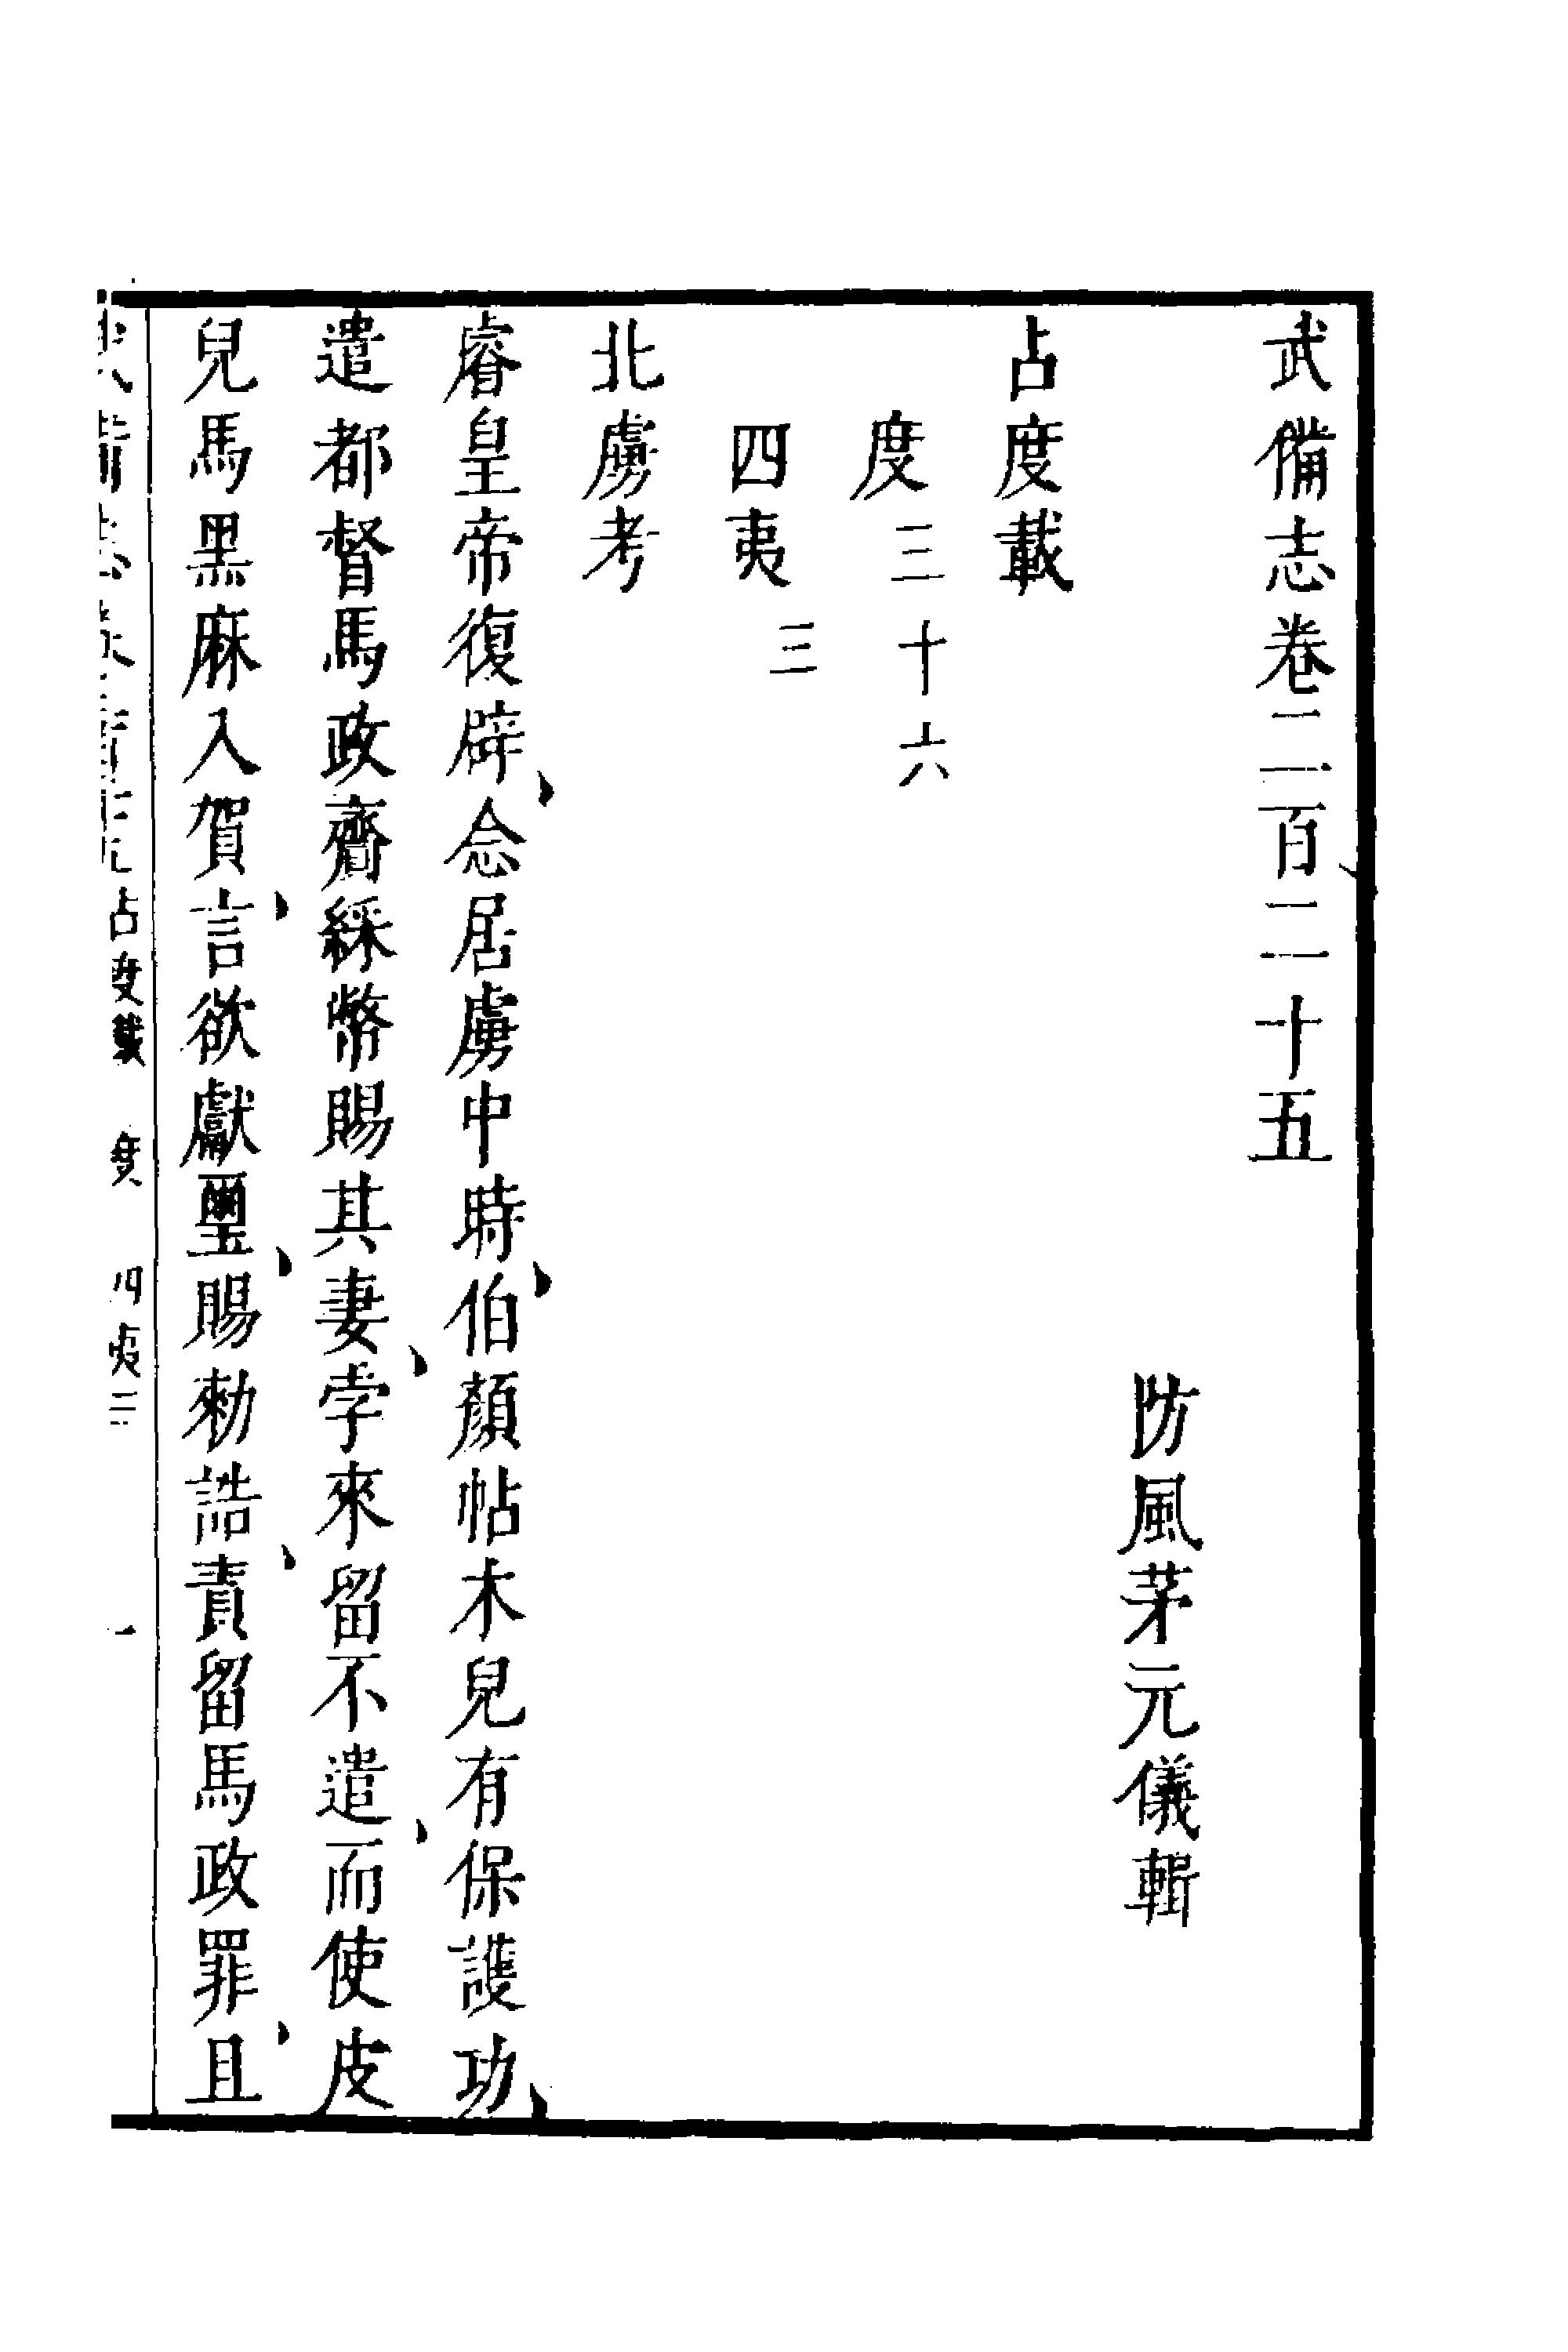 武備志卷二百二十五
防風茅元儀輯
占度載
度三十六
四夷三
北虜考
睿皇帝復辟念居虜中時伯顏帖木兒有保護功
遣都督馬政齎綵幣賜其妻孛來留不遣而使皮
兒馬黑麻入賀言欲獻璽賜勑誥責留馬政罪且
占度載 度 四夷三 一